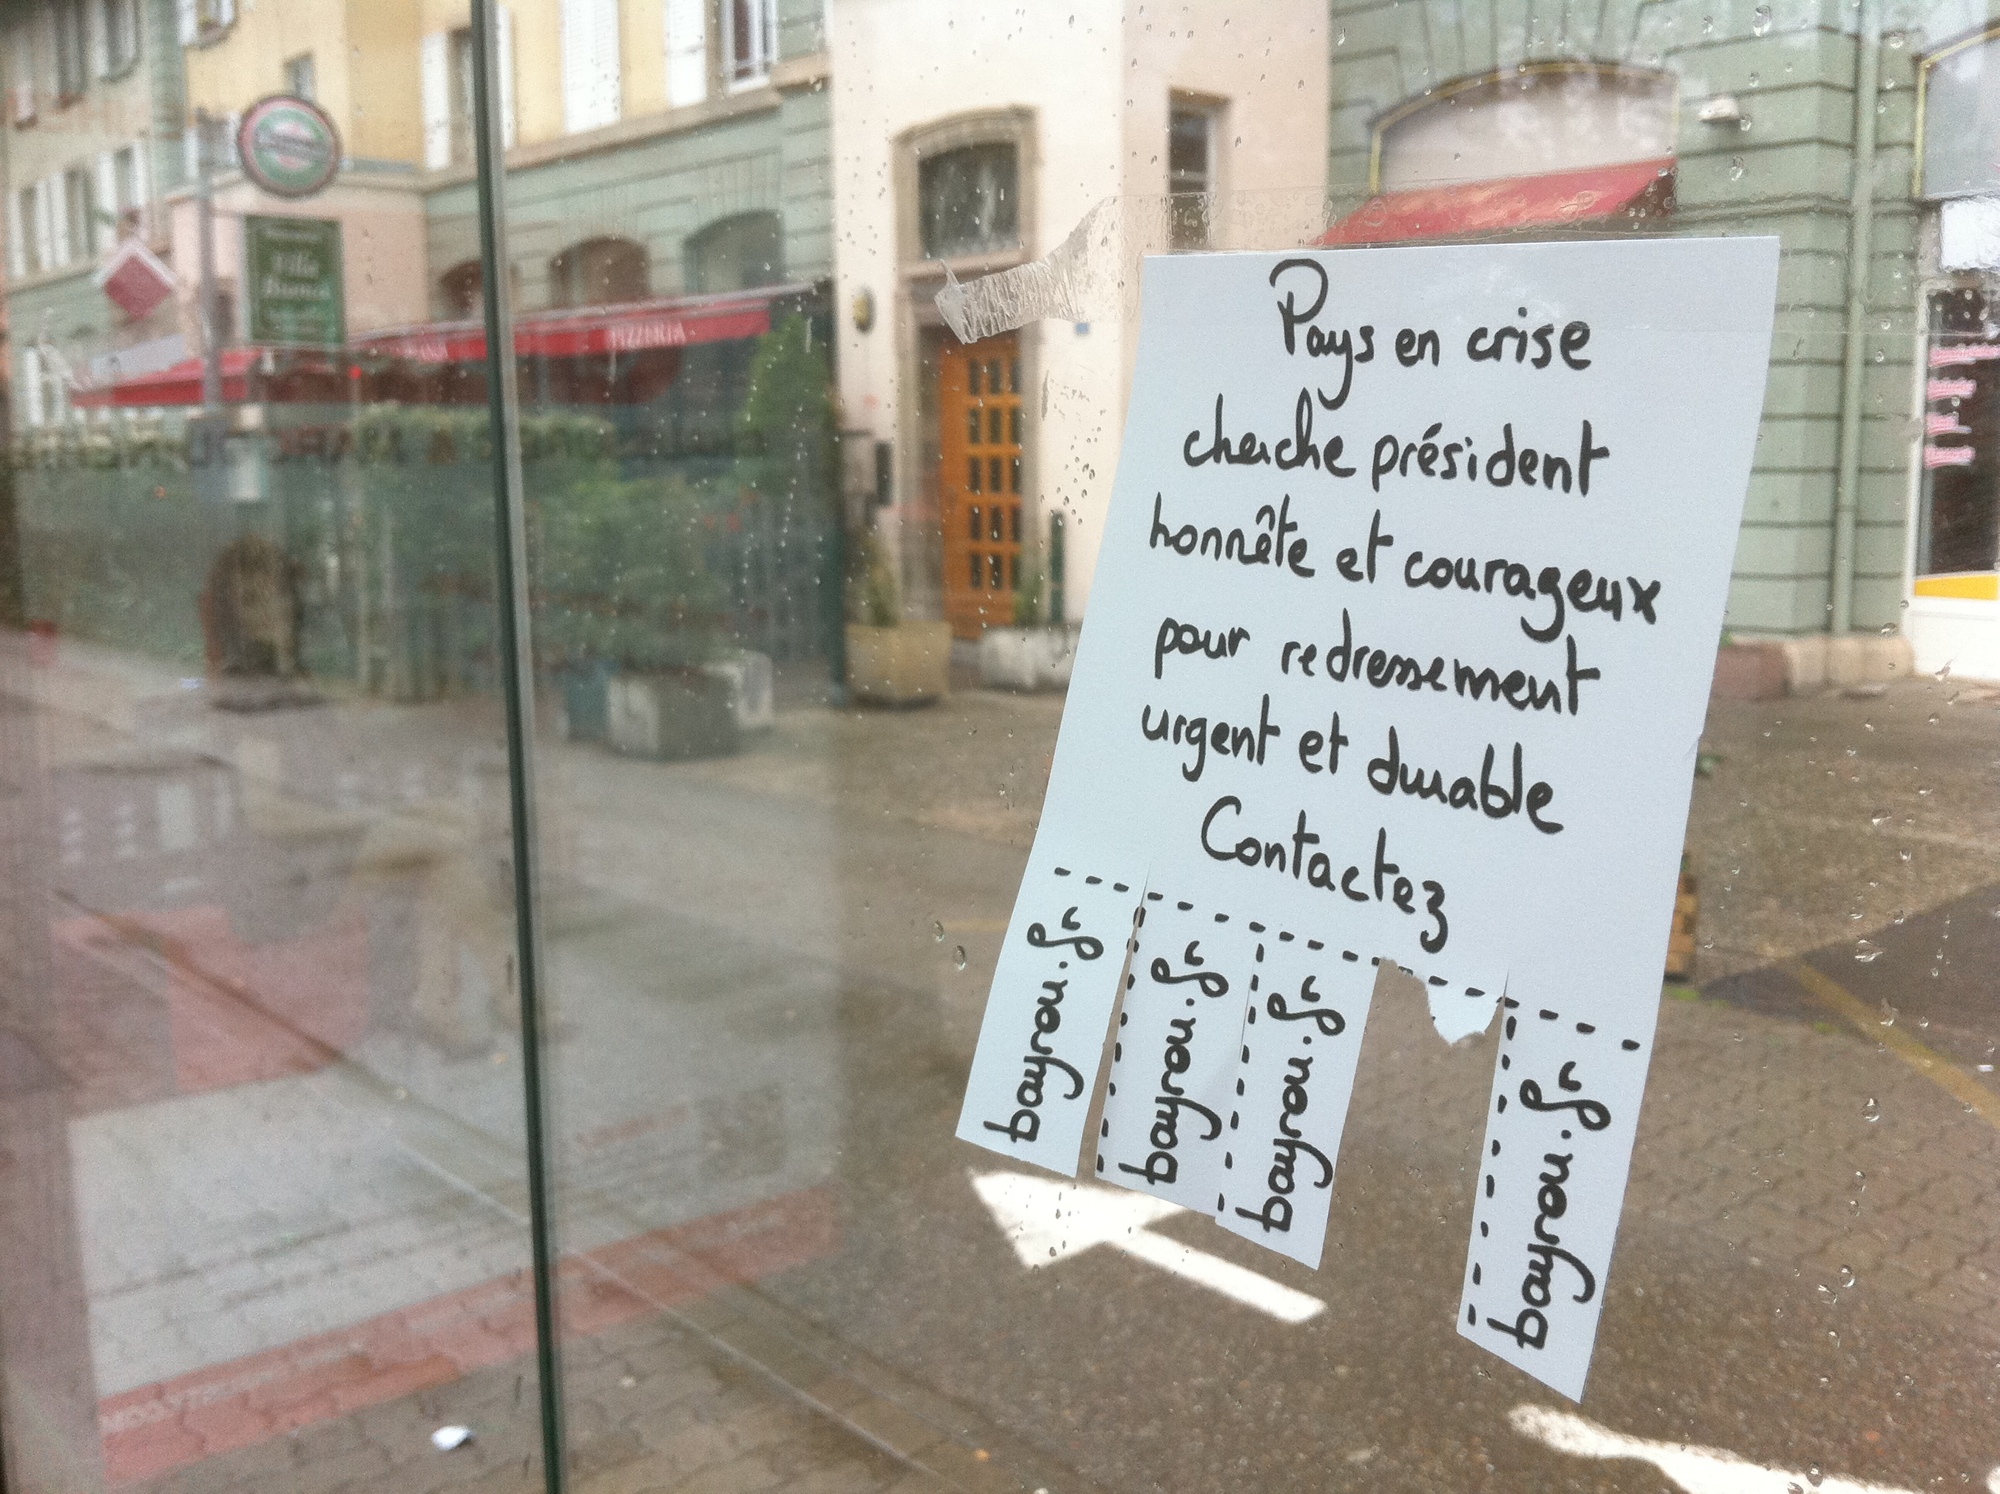 Pays en crise
cherche président
honnête et courageux
pour redressement
urgent et durable
Contactez
bayrou.fr
bayrou.fr
bayrou.fr
bayrou.fr
PIZZERIA
Villa